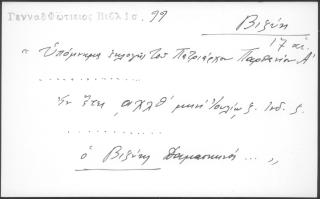 Γενναδ Φωτικιος Βιβλιο. 99
Βιζύη
17 αι.
" Ὑπόμνημα ἐκλογῆς τοῦ Πατριάρχου Παρθενίου Α'
............
ἐν ἔτει αχλθ' μηνὶ Ἰουλίῳ ξ. Ἰνδ. ξ.
............
ὁ Βιζύης Δαμασκηνός ... "